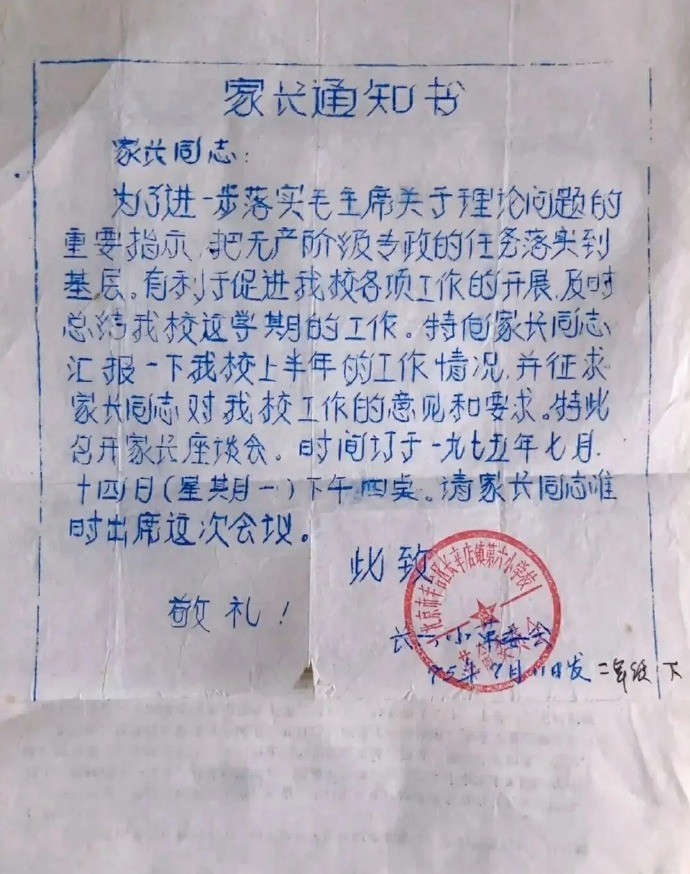 家长通知书
家长同志：
为了进一步落实毛主席关于理论问题的
重要指示，把无产阶级专政的任务落实到
基层。有利于促进我校各项工作的开展，及时
总结我校这学期的工作。特向家长同志
汇报一下我校上半年的工作情况，并征求
家长同志对我校工作的意见和要求。特此
召开家长座谈会。时间订于一九七五年七月
十四日（星期一）下午四点。请家长同志准
时出席这次会议。
此致
敬礼！
北京市丰台区长辛店镇第六小学校
革命委员会
长六小革委会
75年7月11日发 二年级 下